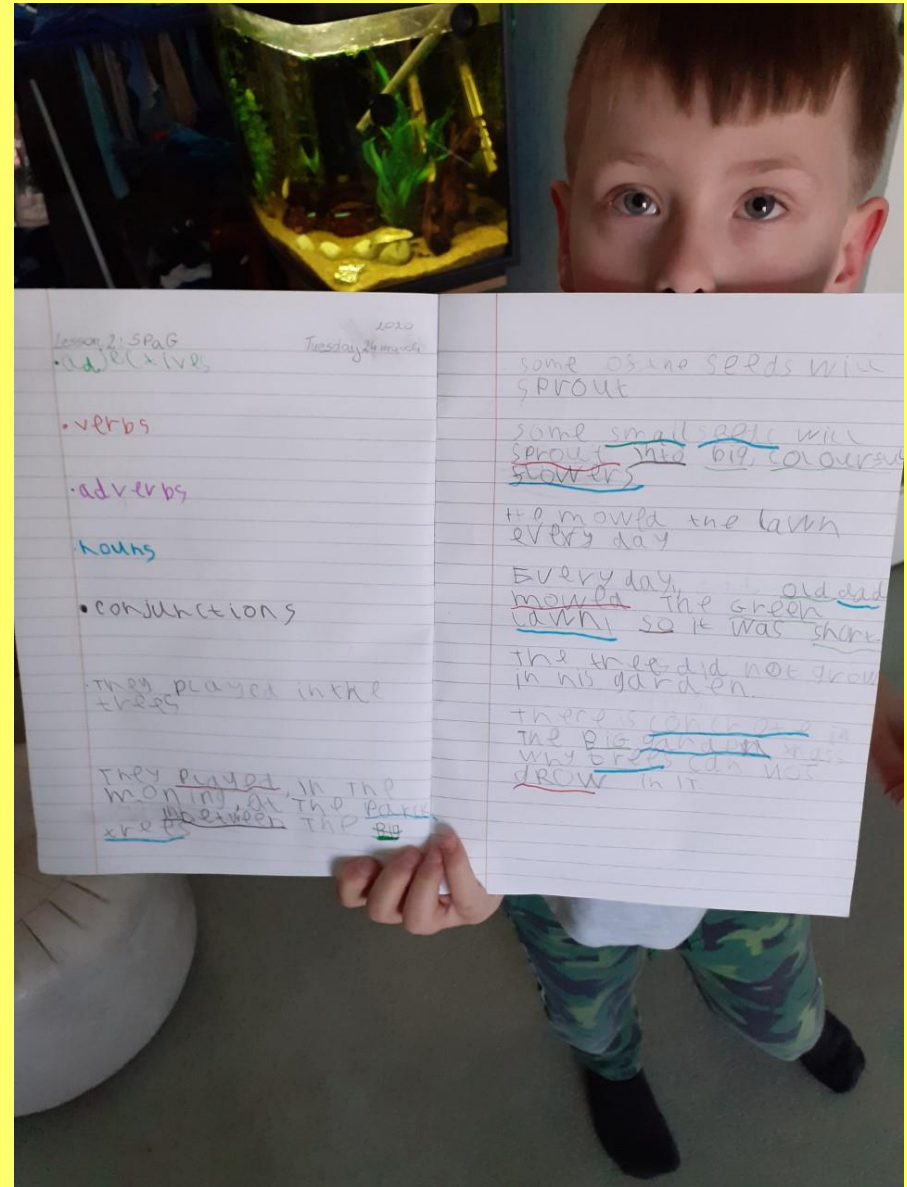 2020
Lesson 2: SPaG Tuesday 24 march
•adjectives
•verbs
•adverbs
•nouns
•conjunctions
They played in the
trees
They played, in the
morning, at the Park
inbetween the Big
trees
some of the seeds will
sprout
some small seeds will
sprout into big colourful
flowers
He mowed the lawn
every day
Every day, old dad
mowed the Green
lawn, so it was short
The tree did not grow
in his garden.
there's concrete in
The BIG garden
why tree can not
GROW in it